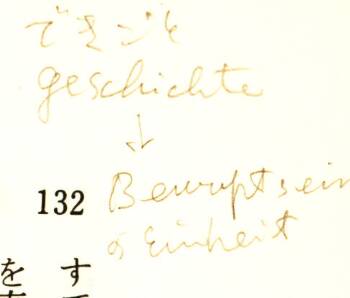 できごと
geschichte
↓
132 Bewußtsein
d Einheit
を す